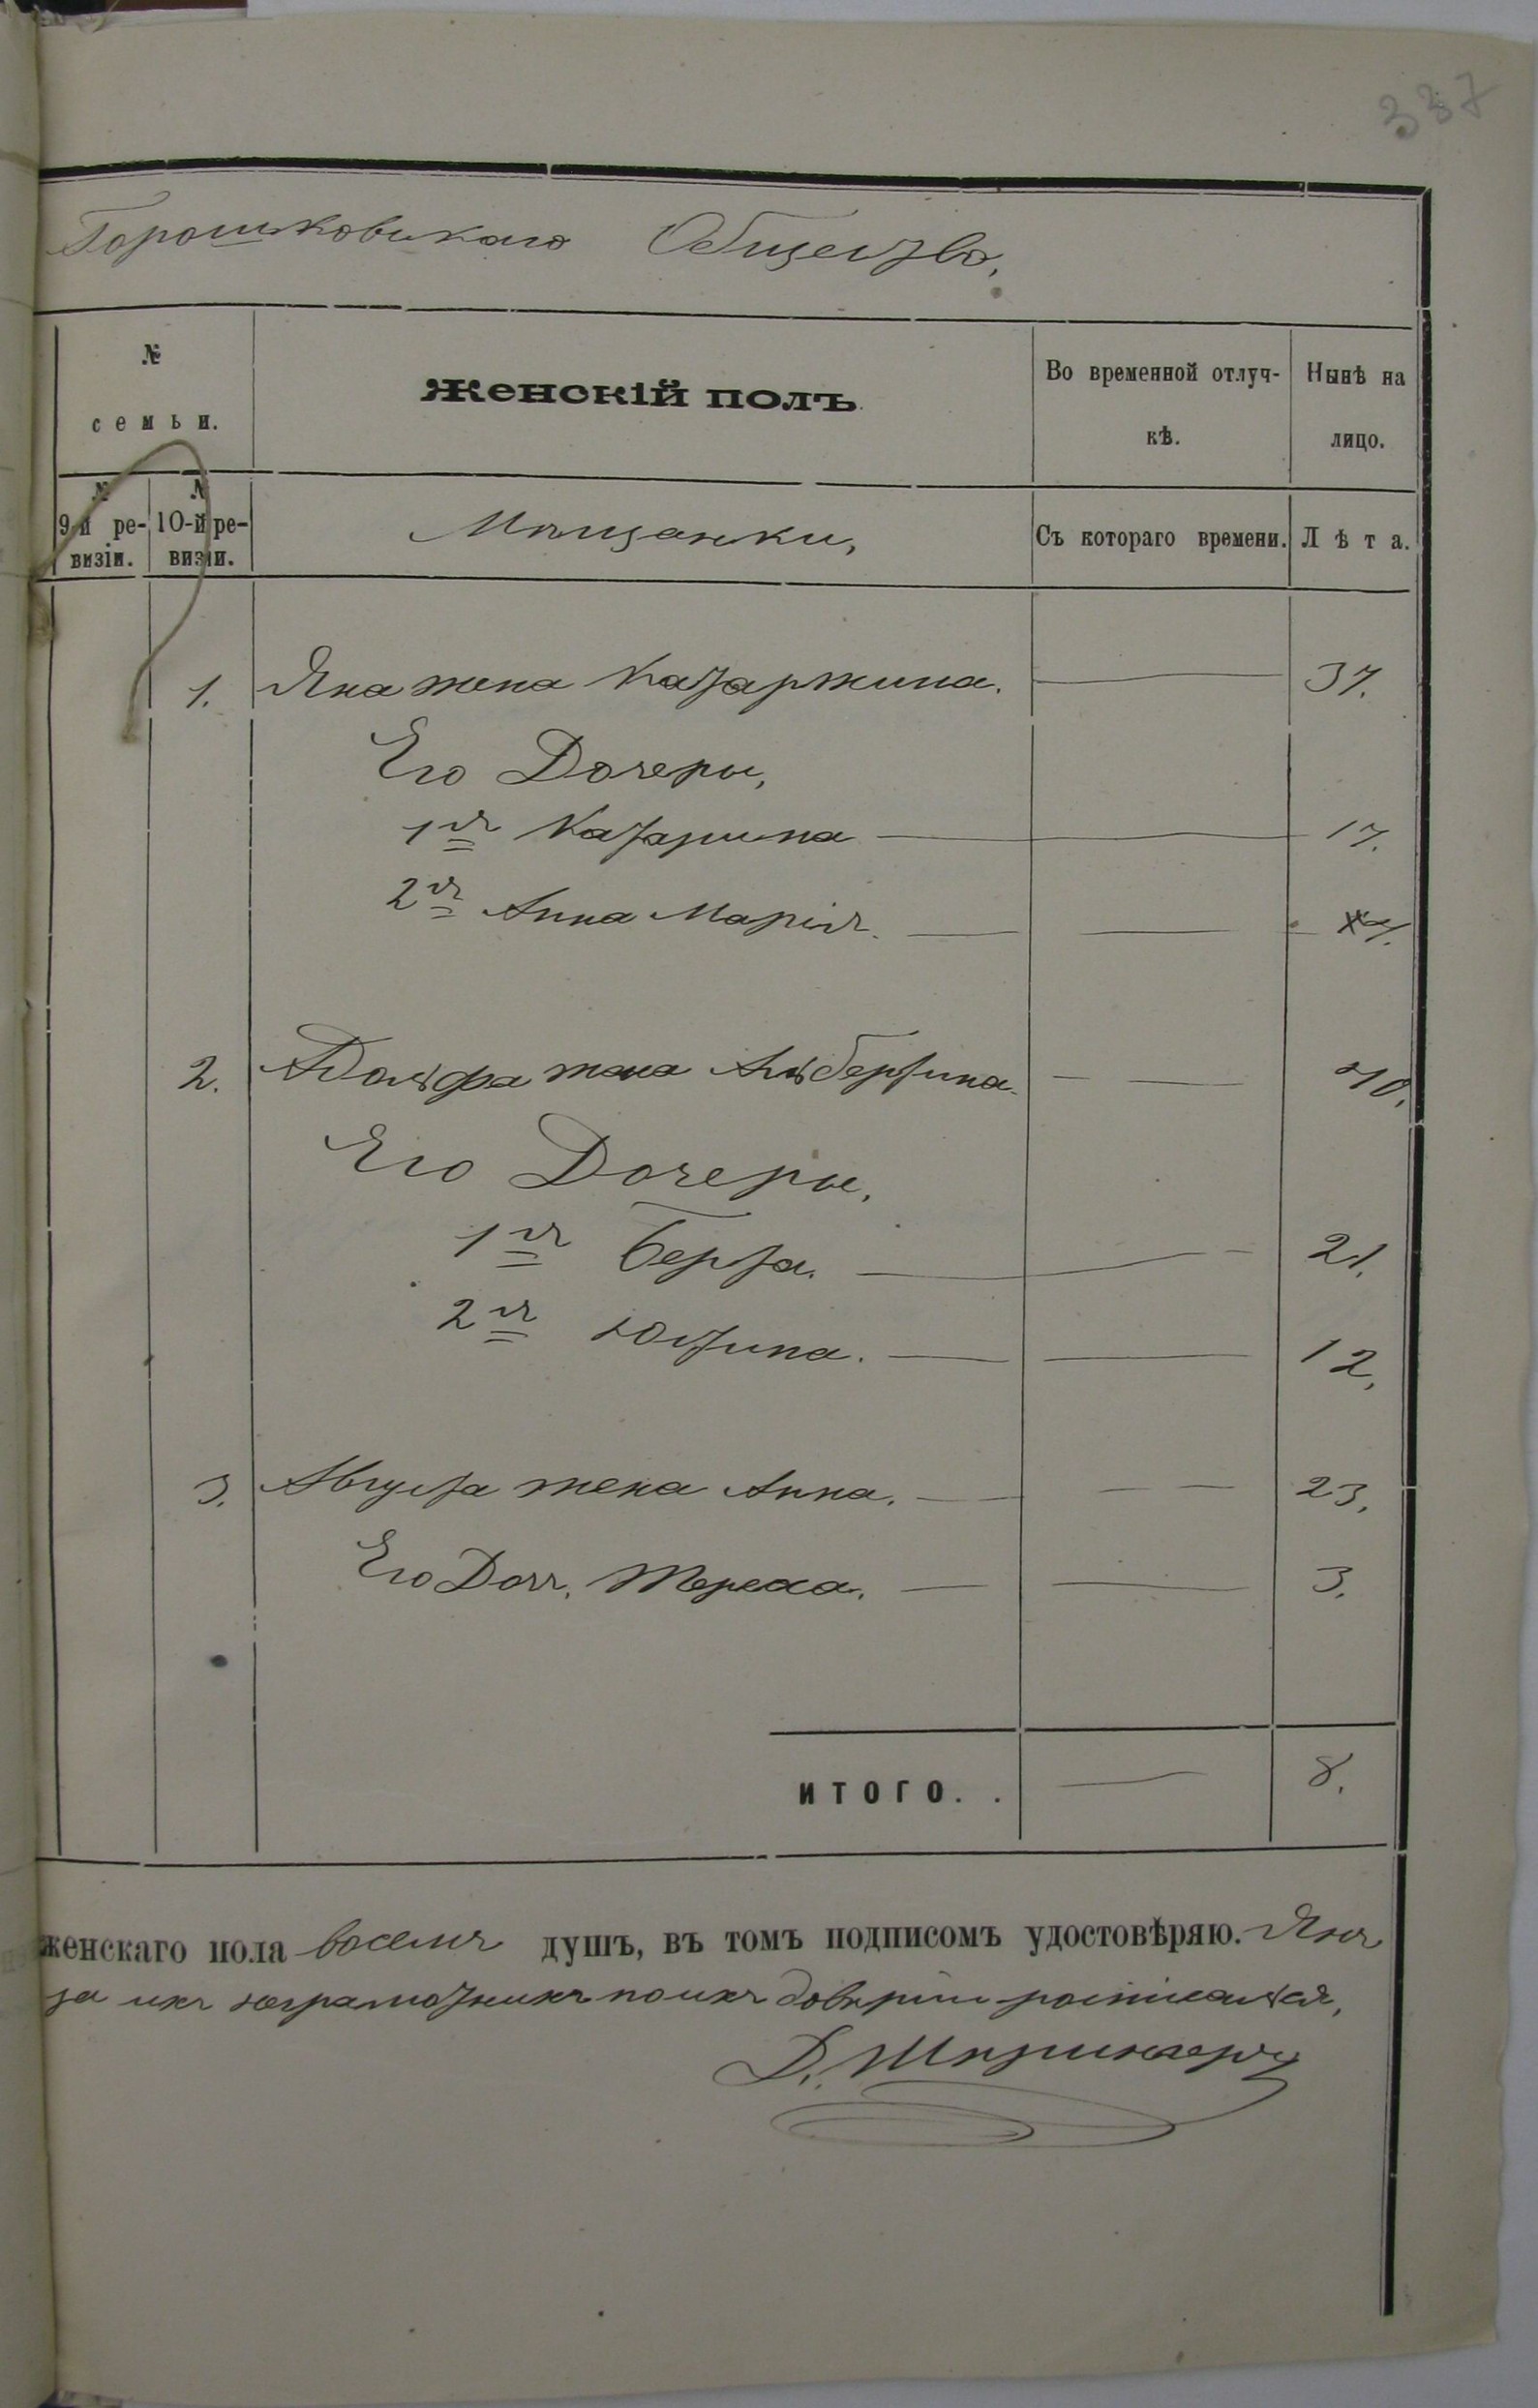 337
Горошковскаго Общества,
№
семьи.
Женскій полъ.
Во временной отлуч-
кѣ.
Нынѣ на
лицо.
№
9-й ре-
визіи.
№
10-й ре-
визіи.
Мѣщанки,
Съ котораго времени.
Лѣта.
1. Яна жена Катаржина. 37.
Его Дочери,
1я Катарина 17.
2я Анна Марія.
2. Адольфа жена Альбертина 40.
Его Дочери,
1я Берта. 21.
2я Юстина. 12,
3. Августа жена Анна. 23.
Его Доч. Тереса. 3.
ИТОГО. . 8.
женскаго пола восемь душъ, въ томъ подписомъ удостовѣряю. Янъ
за ихъ неграмотныхъ по ихъ довѣрію
Д.